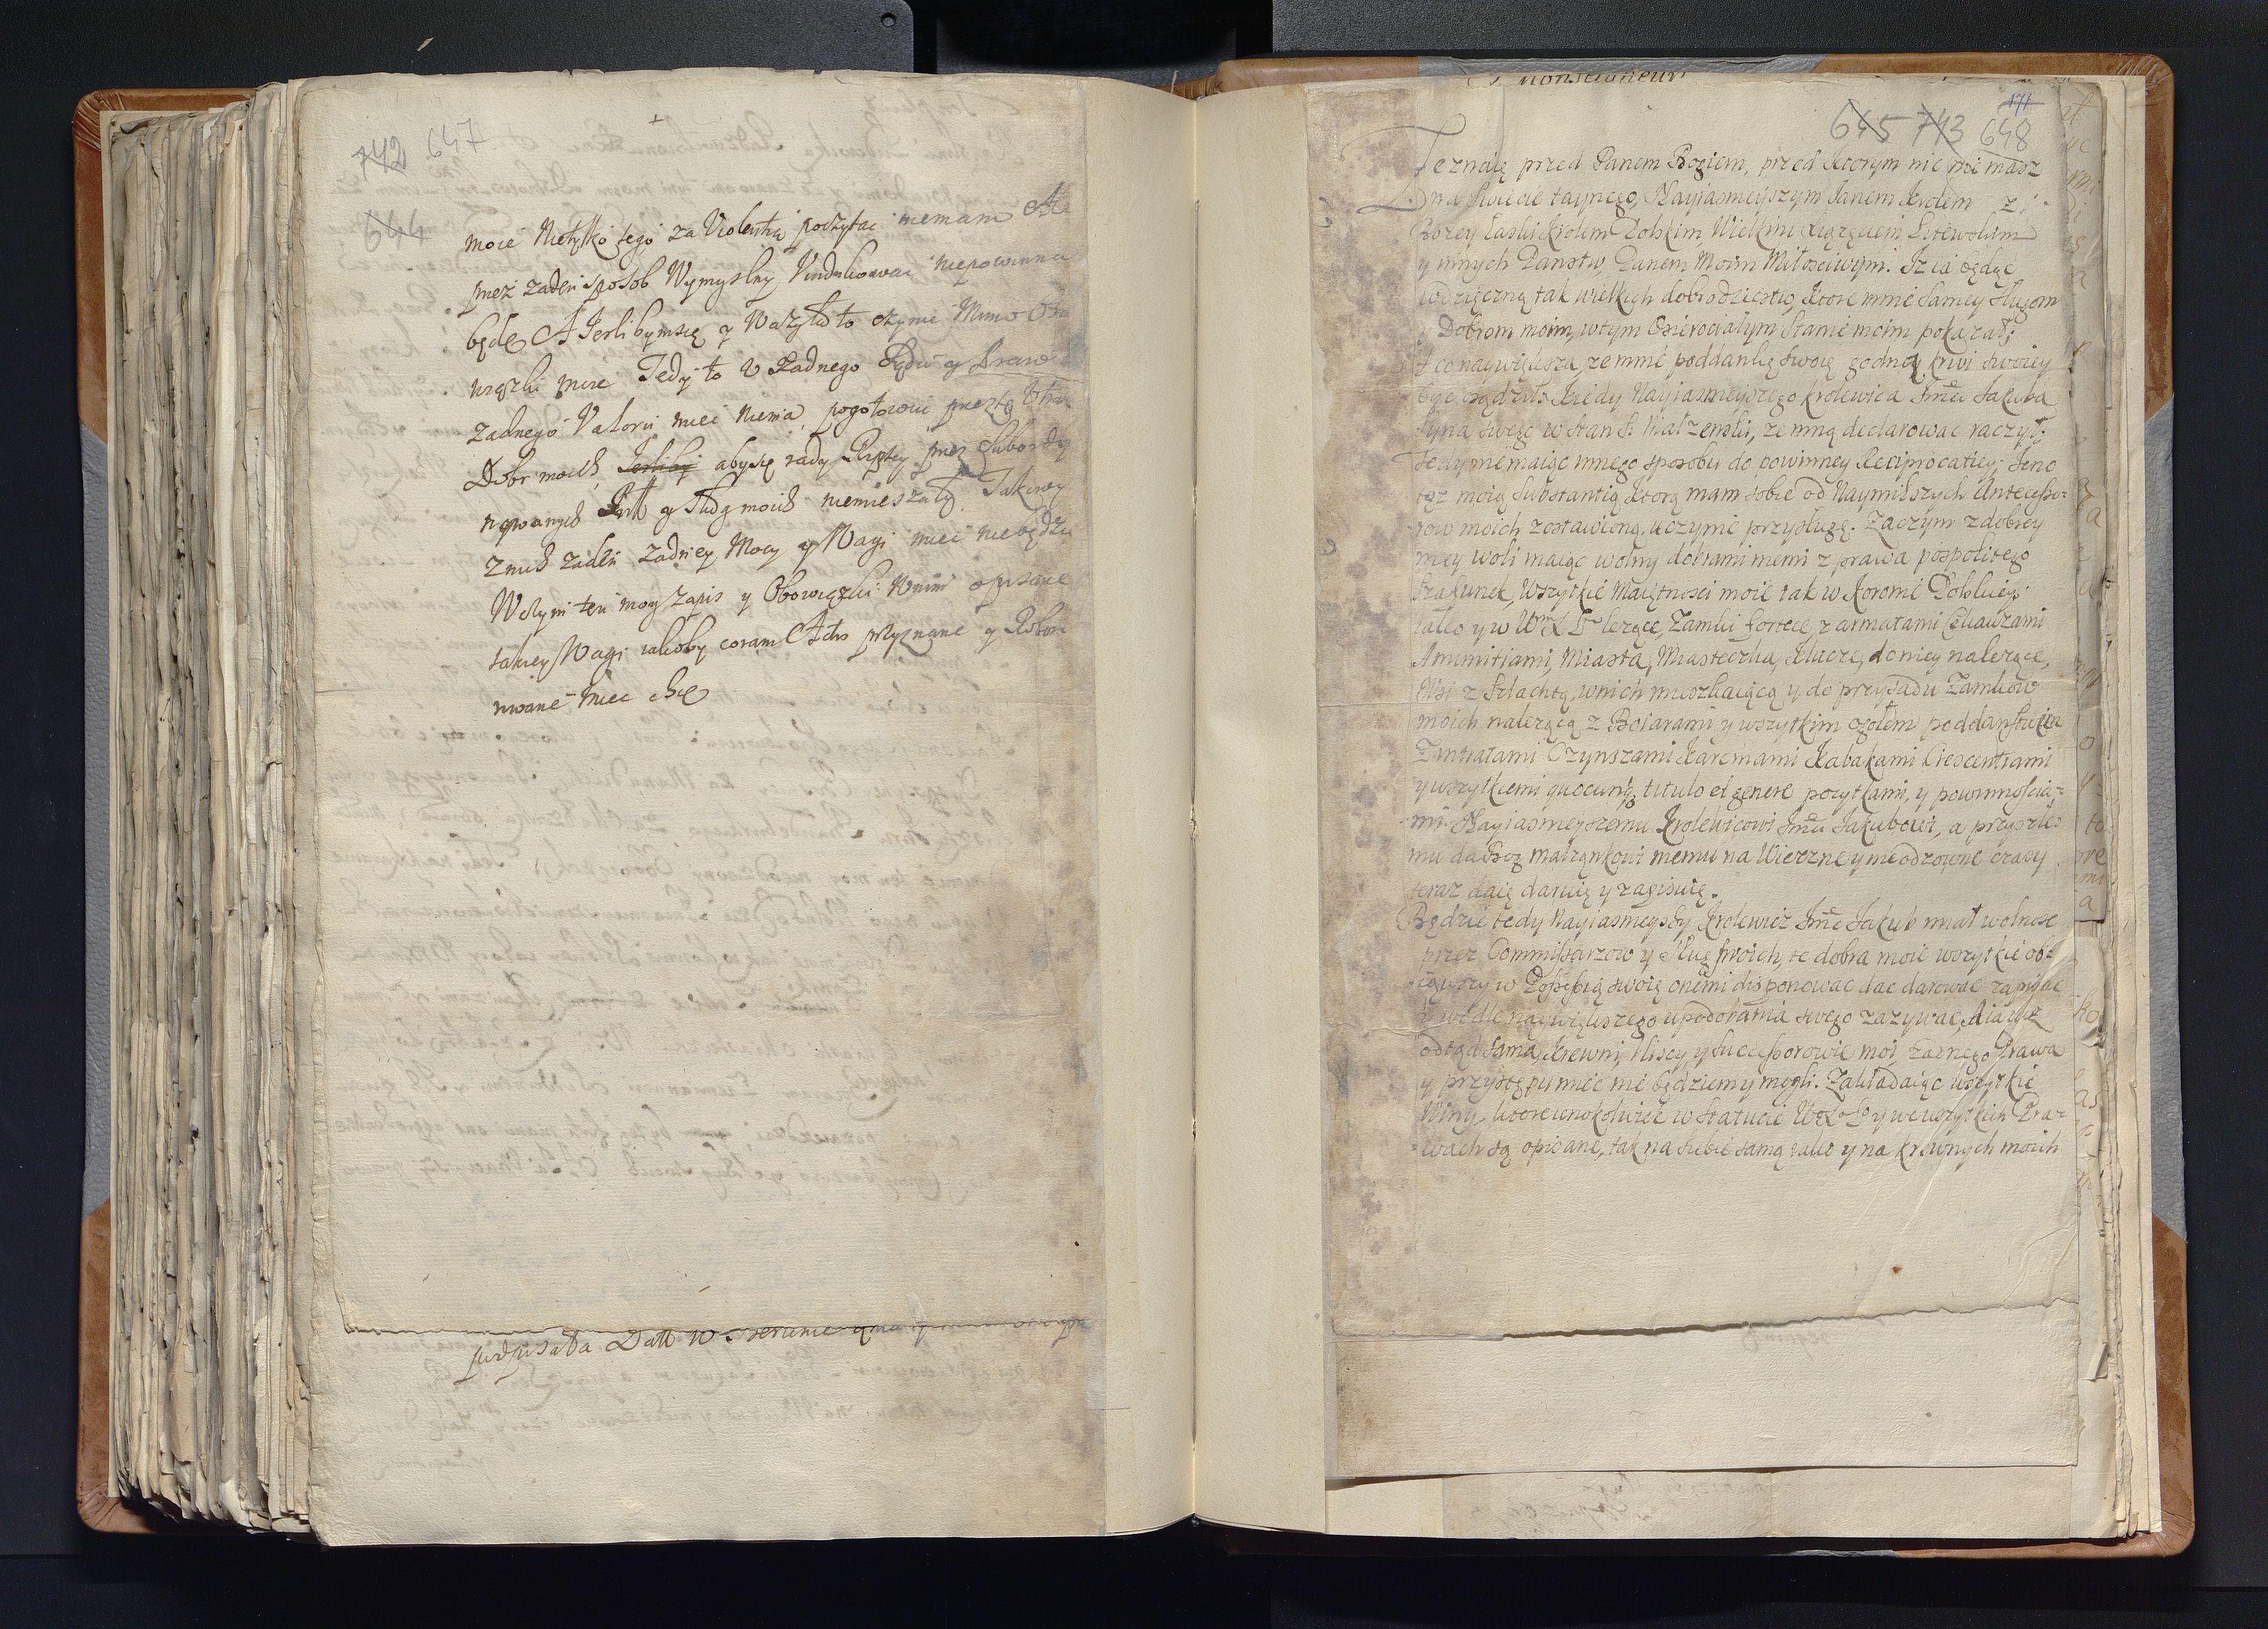 742 647
644
moie Nietylko tego za Violentią poczytac niemam Ale
przez zaden sposob Wymyslny Vindikowac niepowinna
będę A Ierlibymsię y Wazyła to czynic Mimo Obo
wiązki moie Tedy to v Zadnego Sądu y Prawa
zadnego Valoru miec niema, pogotowiu przez tę
Dobr moich, Ierliby aby się rady przez
nowanych y Sług moich niemieszały. Takowey
Znich zaden zadney Mocy y Wagi miec niebędzie
Wczym ten moy Zapis y Obowiązki Wnim opisane
takiey Wagi iakoby coram Actis przyznane y Robo
rowane miec chcę
podpisała Datt w
Monseigneur
171
645 743 648
Zeznaię przed Panem Bogiem, przed ktorym nic nie masz
na swiecie taynego, Nayiasnieyszym Janem krolem z
Bozey łaski krolem Polskim, Wielkim Xiązęciem Litewskim
y innych Panstw, Panem Moim Miłosciwym. Iz ia będąc
wdzięczną tak wielkich dobrodzieistw, ktore mnie samey sługom
y Dobrom moim, wtym Osierociałym Stanie moim pokazał;
A co naywiększa, ze mnie poddankę swoię godną krwi swoiey
byc osądził: kiedy Nayiasnieyszego krolewica Jmci Jakuba
syna swego w stan S. Małzenski, ze mną declarowac raczył;
Tedy niemaiąc innego sposobu do powinney Reciprocatiey; Jeno
tęz moię substantią ktorą mam sobie od Naymilszych Antecesso-
row moich zostawioną, uczynic przysługę. Zaczym z dobrey
mey woli maiąc wolny dobrami memi z prawa pospolitego
szafunek, Wszytkie Maiętnosci moie tak w koronie Polskiey
iako y w W X L lezące, Zamki fortece, z armatami Cekauzami
Amunitiami, Miasta, Miasteczka, klucze, do niey nalezące,
Wsi z szlachtą, wnich mieszkaiącą y do przysądu Zamkow
moich nalezącą z Boiarami y wszytkim ogołem poddanstwem
Zintratami Czynszami karczmami kabakami Crescentiami
y wszytkiemi quocunq titulo et genere pozytkami, y powinnoscia-
mi. Nayiasnieyszemu krolewicowi Jmci Jakubowi, a przyszłe-
mu da Bog małząnkowi memu na Wieczne y nieodzowne czasy
teraz daię daruię y zapisuię.
Będzie tedy Nayiasnieyszy krolewicz Jmc Jakub miał wolnosc
przez Commissarzow y sług swoich, te dobra moie wszytkie ob-
iąwszy w Possessią swoię onemi disponowac dac darowac zapisac
y wedle naywiększego upodobania swego zazywac, A ia iuz
odtąd sama, krewni, bliscy y successorowie moi, zadnego Prawa
y przystępu miec nie będziemy mogli. Zakładaiąc wszytkie
Winy, ktore wiekolwiek w statucie W X L y we wszytkich Pra-
wach są opisane, tak na siebie samą iako y na krewnych moich